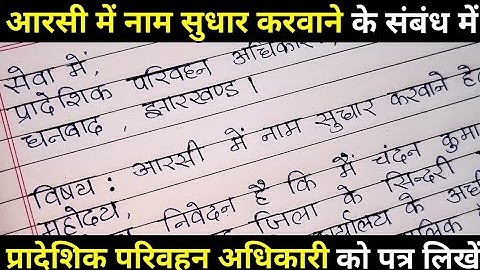 आरसी में नाम सुधार करवाने के संबंध में
सेवा में,
प्रादेशिक परिवहन अधिकारी,
धनबाद, झारखण्ड।
विषय : आरसी में नाम सुधार करवाने
महोदय,
निवेदन है कि मैं चंदन कुमा
जिला के सिन्दरी
के
प्रादेशिक परिवहन अधिकारी को पत्र लिखें